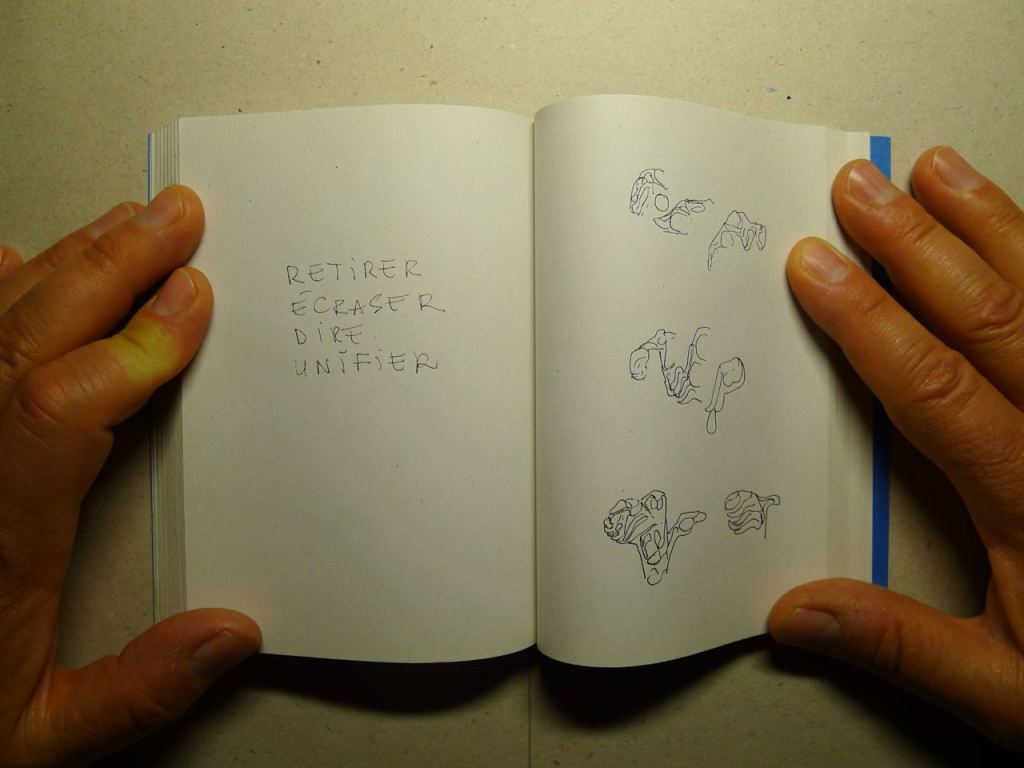 RETIRER
ÉCRASER
DIRE
UNIFIER